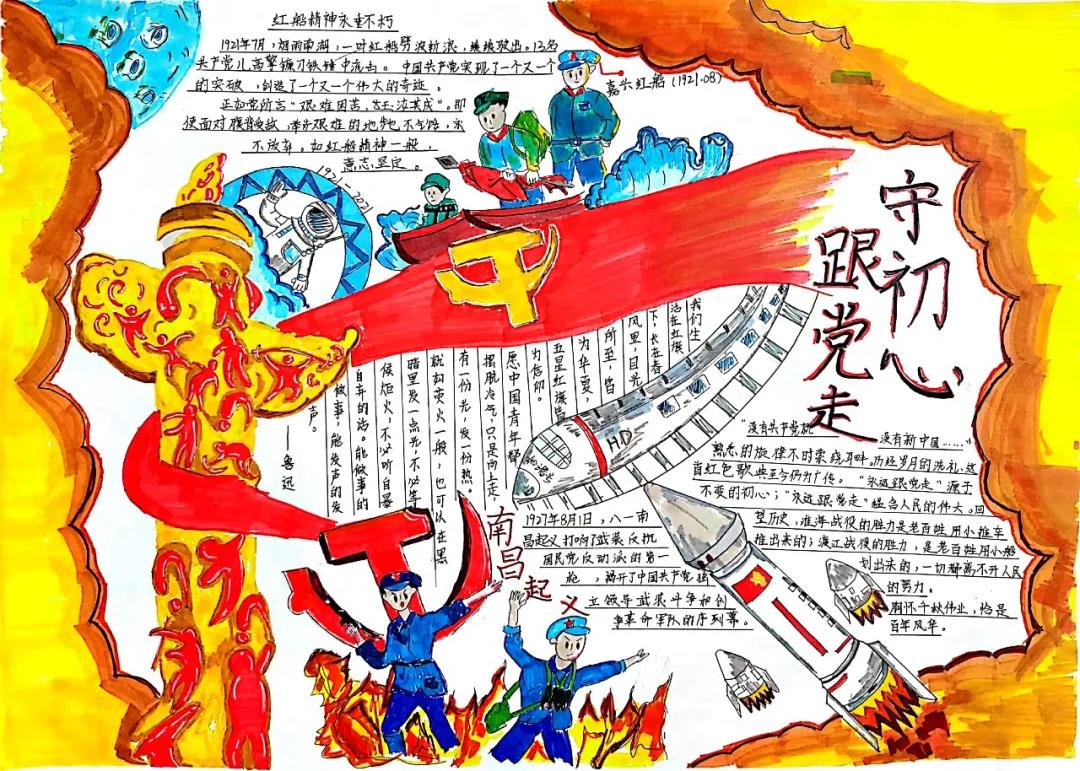 红船精神永垂不朽
1921年7月，烟雨南湖，一叶红船劈波斩浪，缓缓驶出。13名
共产党儿高擎镰刀铁锤中流击。中国共产党实现了一个又一个
的突破，创造了一个又一个伟大的奇迹。
正如党所言“艰难困苦，玉汝其成”。即
使面对腹背受敌，举步艰难的地步也不气馁，永
不放弃。如红船精神一般，
意志坚定。
1921-2021
嘉兴红船(1921.08)
守初心
跟党走
我们生
活在红旗
下，长在春
风里，目光
所至，皆
为华夏，
五星红旗皆
为信仰。
愿中国青年都
摆脱冷气，只是向上走，
有一份光，发一份热。
就如萤火一般，也可以在黑
暗里发一点光，不必等
候炬火，不必听自暴
自弃的话。能做事的
做事，能发声的发
声。
——鲁迅
HD
“没有共产党就
没有新中国……”
熟悉的旋律不时萦绕耳畔。历经岁月的洗礼，这
首红色歌典至今仍为广传。“永远跟党走”源于
不变的初心；“永远跟党走”蕴含人民的伟大。回
望历史，淮海战役的胜力是老百姓用小推车
推出来的；渡江战役的胜力，是老百姓用小船
划出来的，一切都离不开人民
的努力。
胸怀千秋伟业，恰是
百年风华。
南昌起义
1927年8月1日，八一南
昌起义打响了武装反抗
国民党反动派的第一
枪，揭开了中国共产党独
立领导武装斗争和创
争革命军队的序列幕。